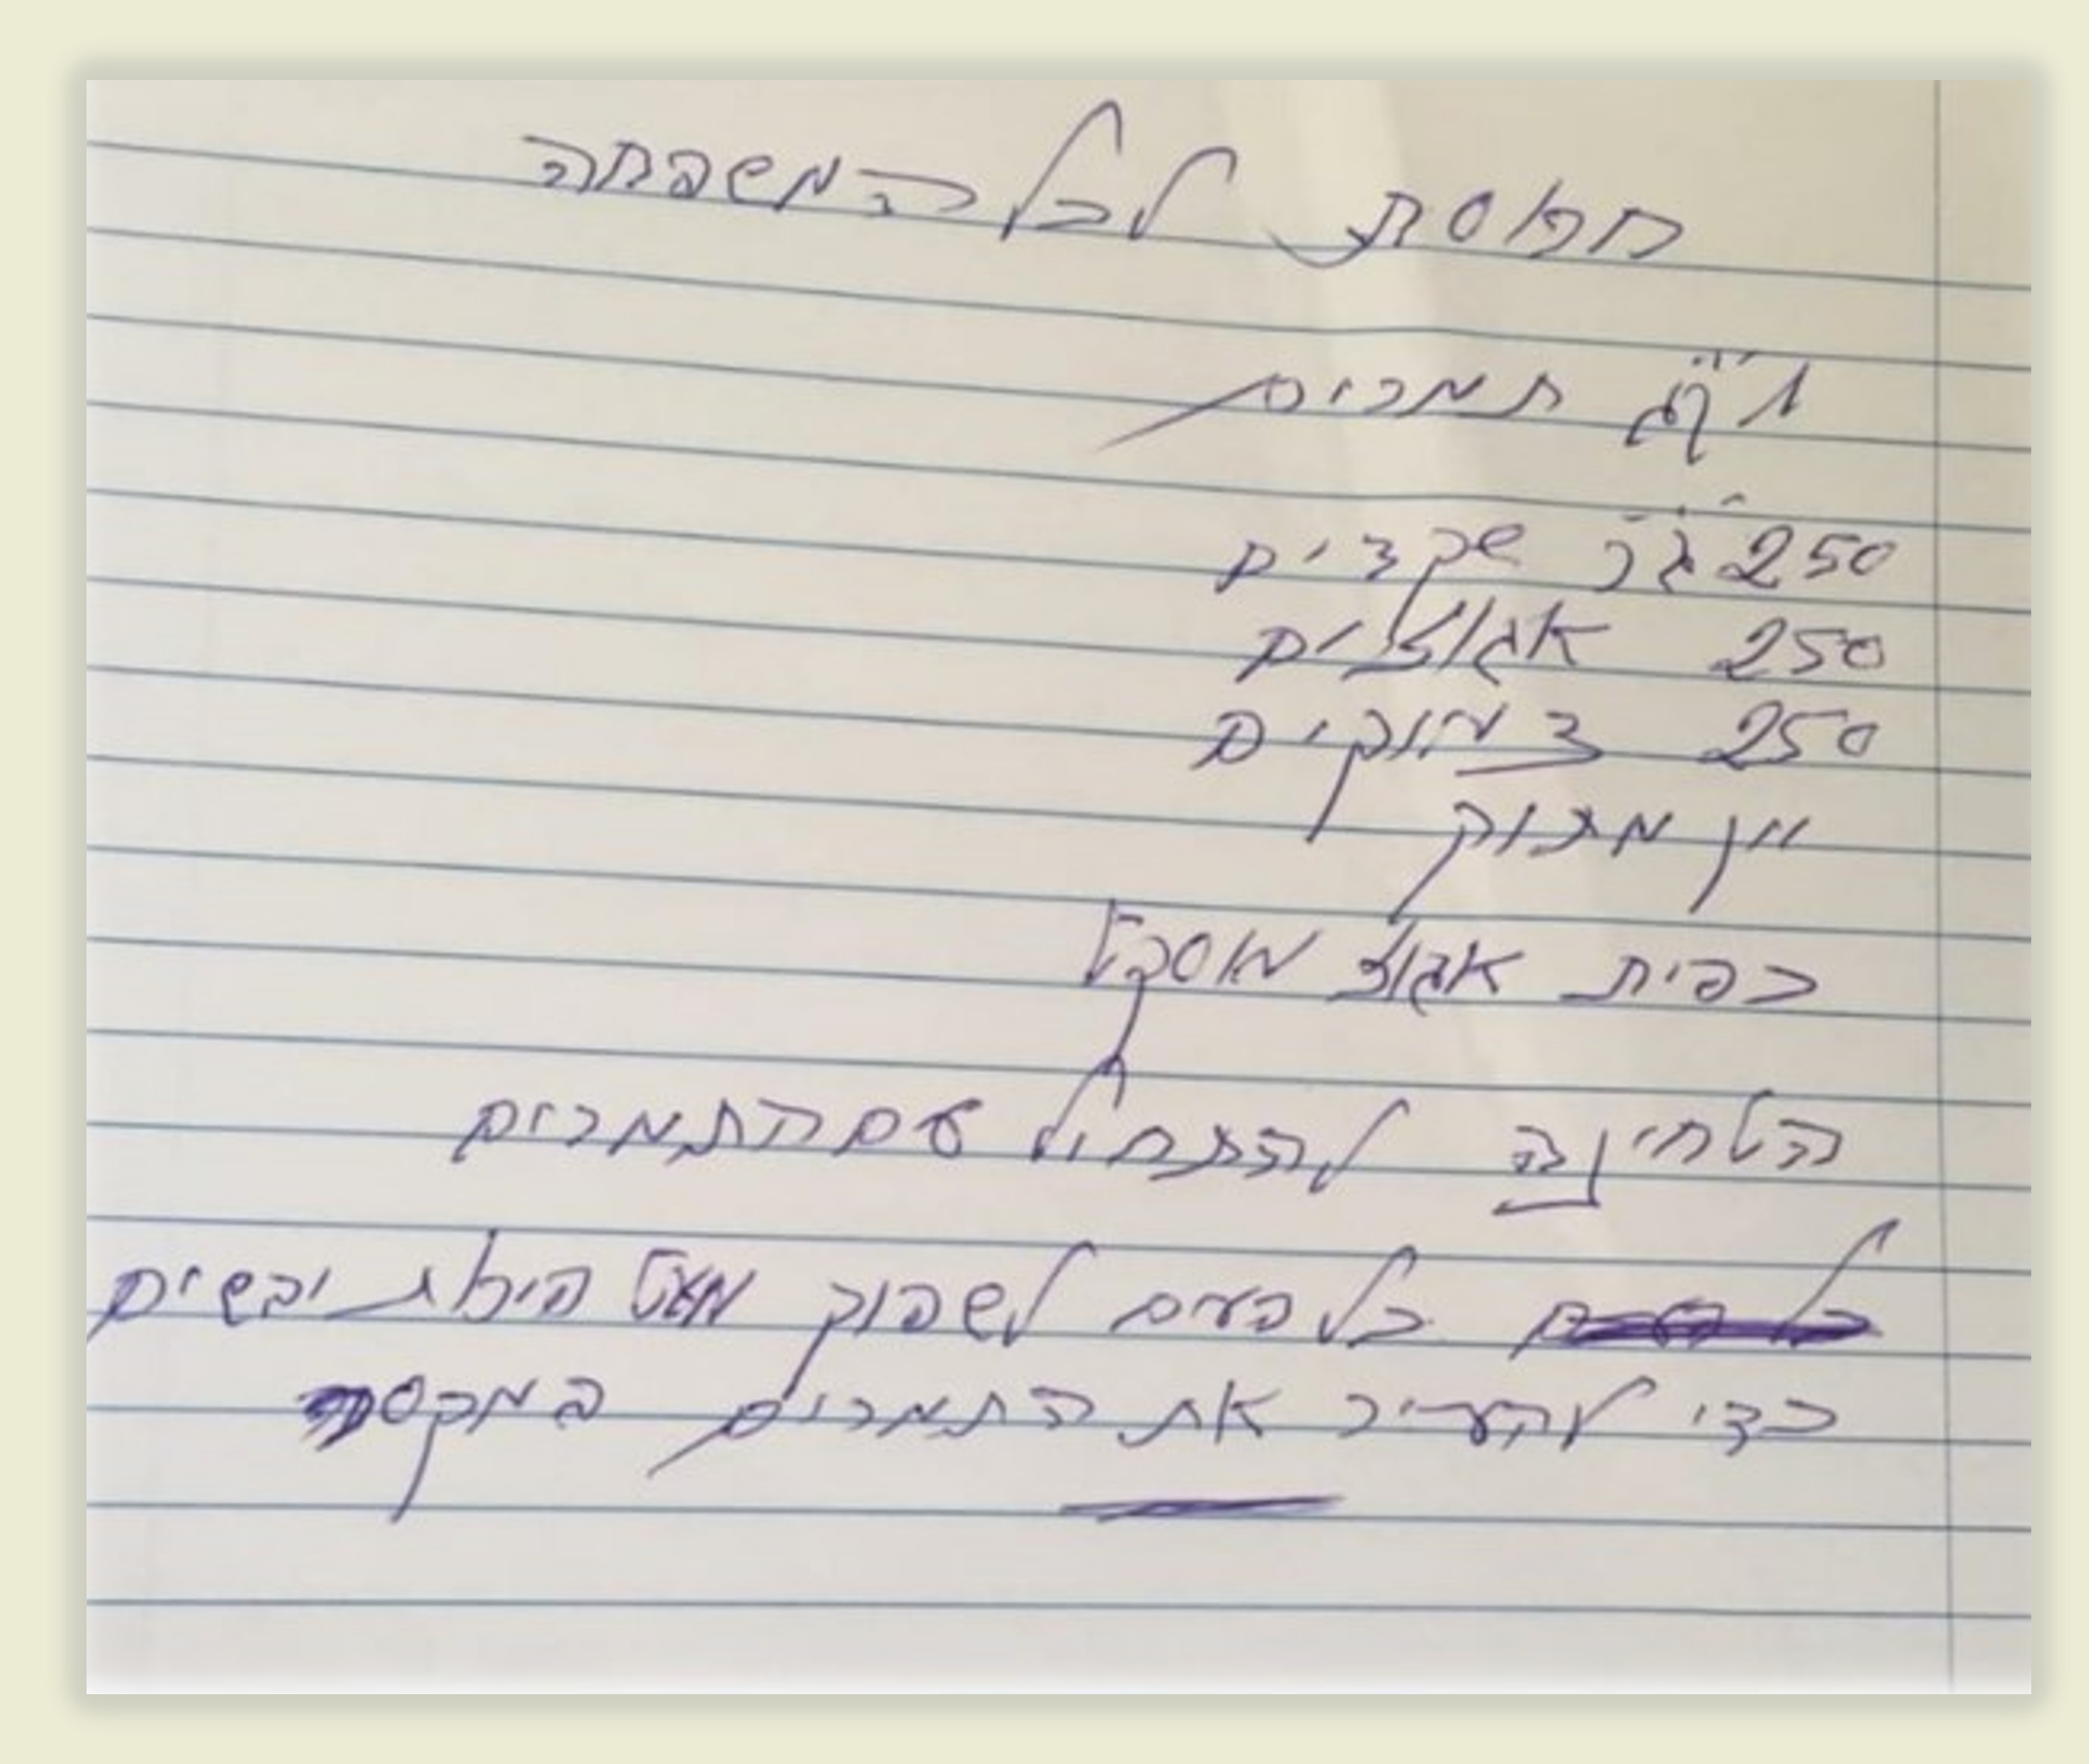 חרוסת לכל המשפחה
1 ק"ג תמרים
250 גר' שקדים
250 אגוזים
250 צמוקים
יין מתוק
כפית אגוז מוסקט
הטחינה להתחיל עם התמרים
כל פעם לשפוך מעט יבשים
כדי להעביר את התמרים במקסר